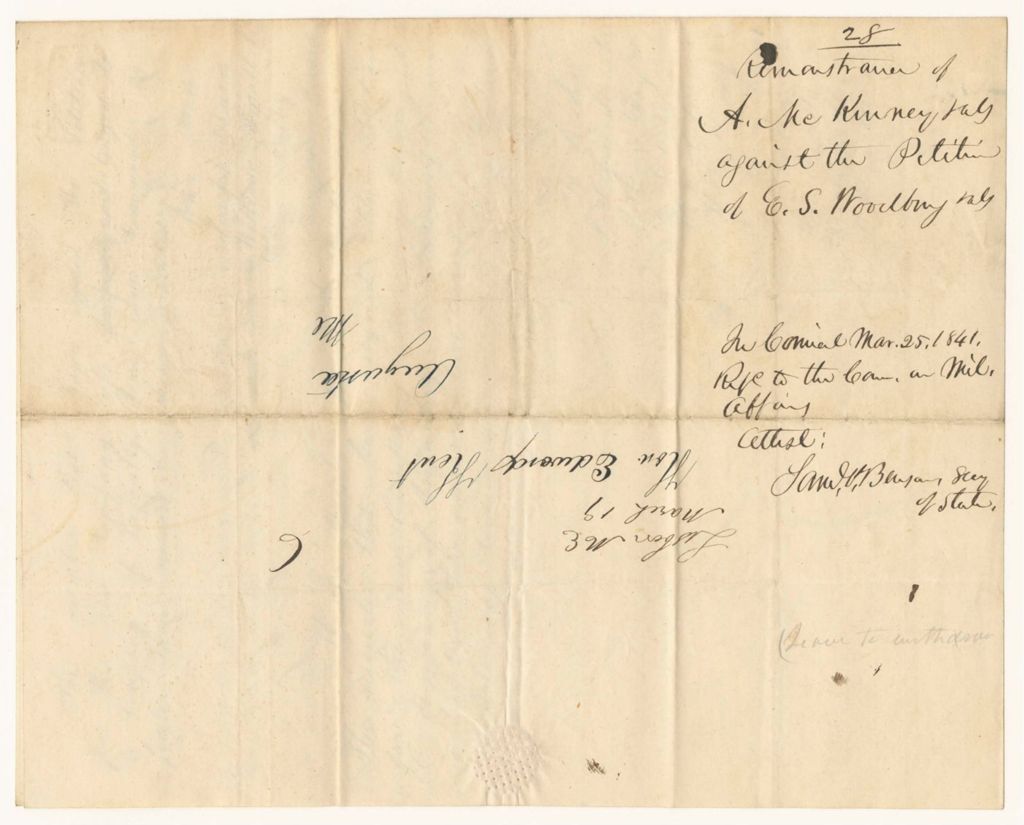 28
Remonstrance of
A. McKinney & als
against the Petition
of E. S. Woodbury & als
In Council Mar. 25, 1841.
Ref to the Com. on Mil.
Affairs
Attest:
Saml. P. Benson, Secy
of State.
(Leave to withdraw
Lisbon ME
March 19
6
Hon Edward Kent
Augusta
Me